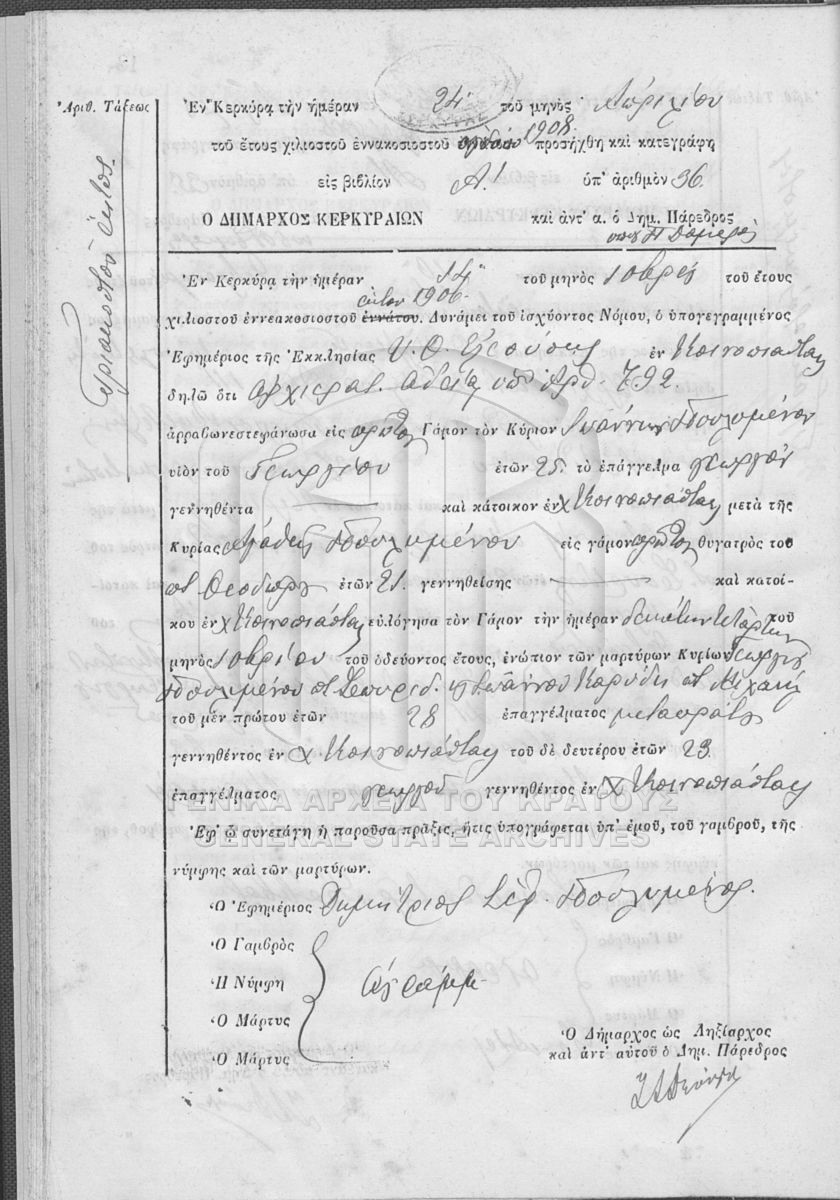 Ἀριθ. Τάξεως
τριακοστὸν ἕκτος.
Ἐν Κερκύρᾳ τὴν ἡμέραν 24 τοῦ μηνὸς Ἀπριλίου
τοῦ ἔτους χιλιοστοῦ ἐννακοσιοστοῦ ὀγδόου 1908 προσήχθη καὶ κατεγράφη
εἰς βιβλίον Α! ὑπ' ἀριθμὸν 36.
Ο ΔΗΜΑΡΧΟΣ ΚΕΡΚΥΡΑΙΩΝ καὶ ἀντ' α. ὁ Δημ. Πάρεδρος
Ἐν Κερκύρᾳ τὴν ἡμέραν 14 τοῦ μηνὸς 10βρίου τοῦ ἔτους
ἕκτου 1906.
χιλιοστοῦ ἐννεακοσιοστοῦ ἐννάτου. Δυνάμει τοῦ ἰσχύοντος Νόμου, ὁ ὑπογεγραμμένος
Ἐφημέριος τῆς Ἐκκλησίας Υ. Θ. Ἐλεούσης ἐν Κοινοπιάταις
δηλῶ ὅτι ἀρχιερατ. ἀδείᾳ ὑπ' Ἀρθ. 792.
ἀρραβωνεστεφάνωσα εἰς πρῶτον Γάμον τὸν Κύριον Ἰωάννην Πουλυμένον
υἱὸν τοῦ Γεωργίου ἐτῶν 25. τὸ ἐπάγγελμα γεωργὸν
γεννηθέντα καὶ κάτοικον ἐν χ Κοινοπιάταις μετὰ τῆς
Κυρίας Πουλυμένου εἰς γάμον πρῶτον θυγατρὸς τοῦ
πτ Θεοδώρου ἐτῶν 21. γεννηθείσης καὶ κατοί-
κου ἐν χ Κοινοπιάταις εὐλόγησα τὸν Γάμον τὴν ἡμέραν δεκάτην τετάρτην τοῦ
μηνὸς 10βρίου τοῦ ὁδεύοντος ἔτους, ἐνώπιον τῶν μαρτύρων Κυρίων Γεωργίου
Πουλυμένου πτ Σπυρίδ. καὶ Ἰωάννου Καρύδη πτ Μιχαὴλ
τοῦ μὲν πρώτου ἐτῶν 28 ἐπαγγέλματος μεταπράτου
γεννηθέντος ἐν χ Κοινοπιάταις τοῦ δὲ δευτέρου ἐτῶν 23.
ἐπαγγέλματος γεωργοῦ γεννηθέντος ἐν χ Κοινοπιάταις
ΓΕΝΙΚΑ ΑΡΧΕΙΑ ΤΟΥ ΚΡΑΤΟΥΣ
Ἐφ' ᾧ συνετάγη ἡ παροῦσα πρᾶξις, ἥτις ὑπογράφεται ὑπ' ἐμοῦ, τοῦ γαμβροῦ, τῆς
GENERAL STATE ARCHIVES
νύμφης καὶ τῶν μαρτύρων.
Ὁ Ἐφημέριος Δημήτριος Ἱερ. Πουλυμένος.
Ὁ Γαμβρὸς
Ἡ Νύμφη ἀγράμμ.
Ὁ Μάρτυς
Ὁ Μάρτυς
Ὁ Δήμαρχος ὡς Ληξίαρχος
καὶ ἀντ' αὐτοῦ ὁ Δημ. Πάρεδρος